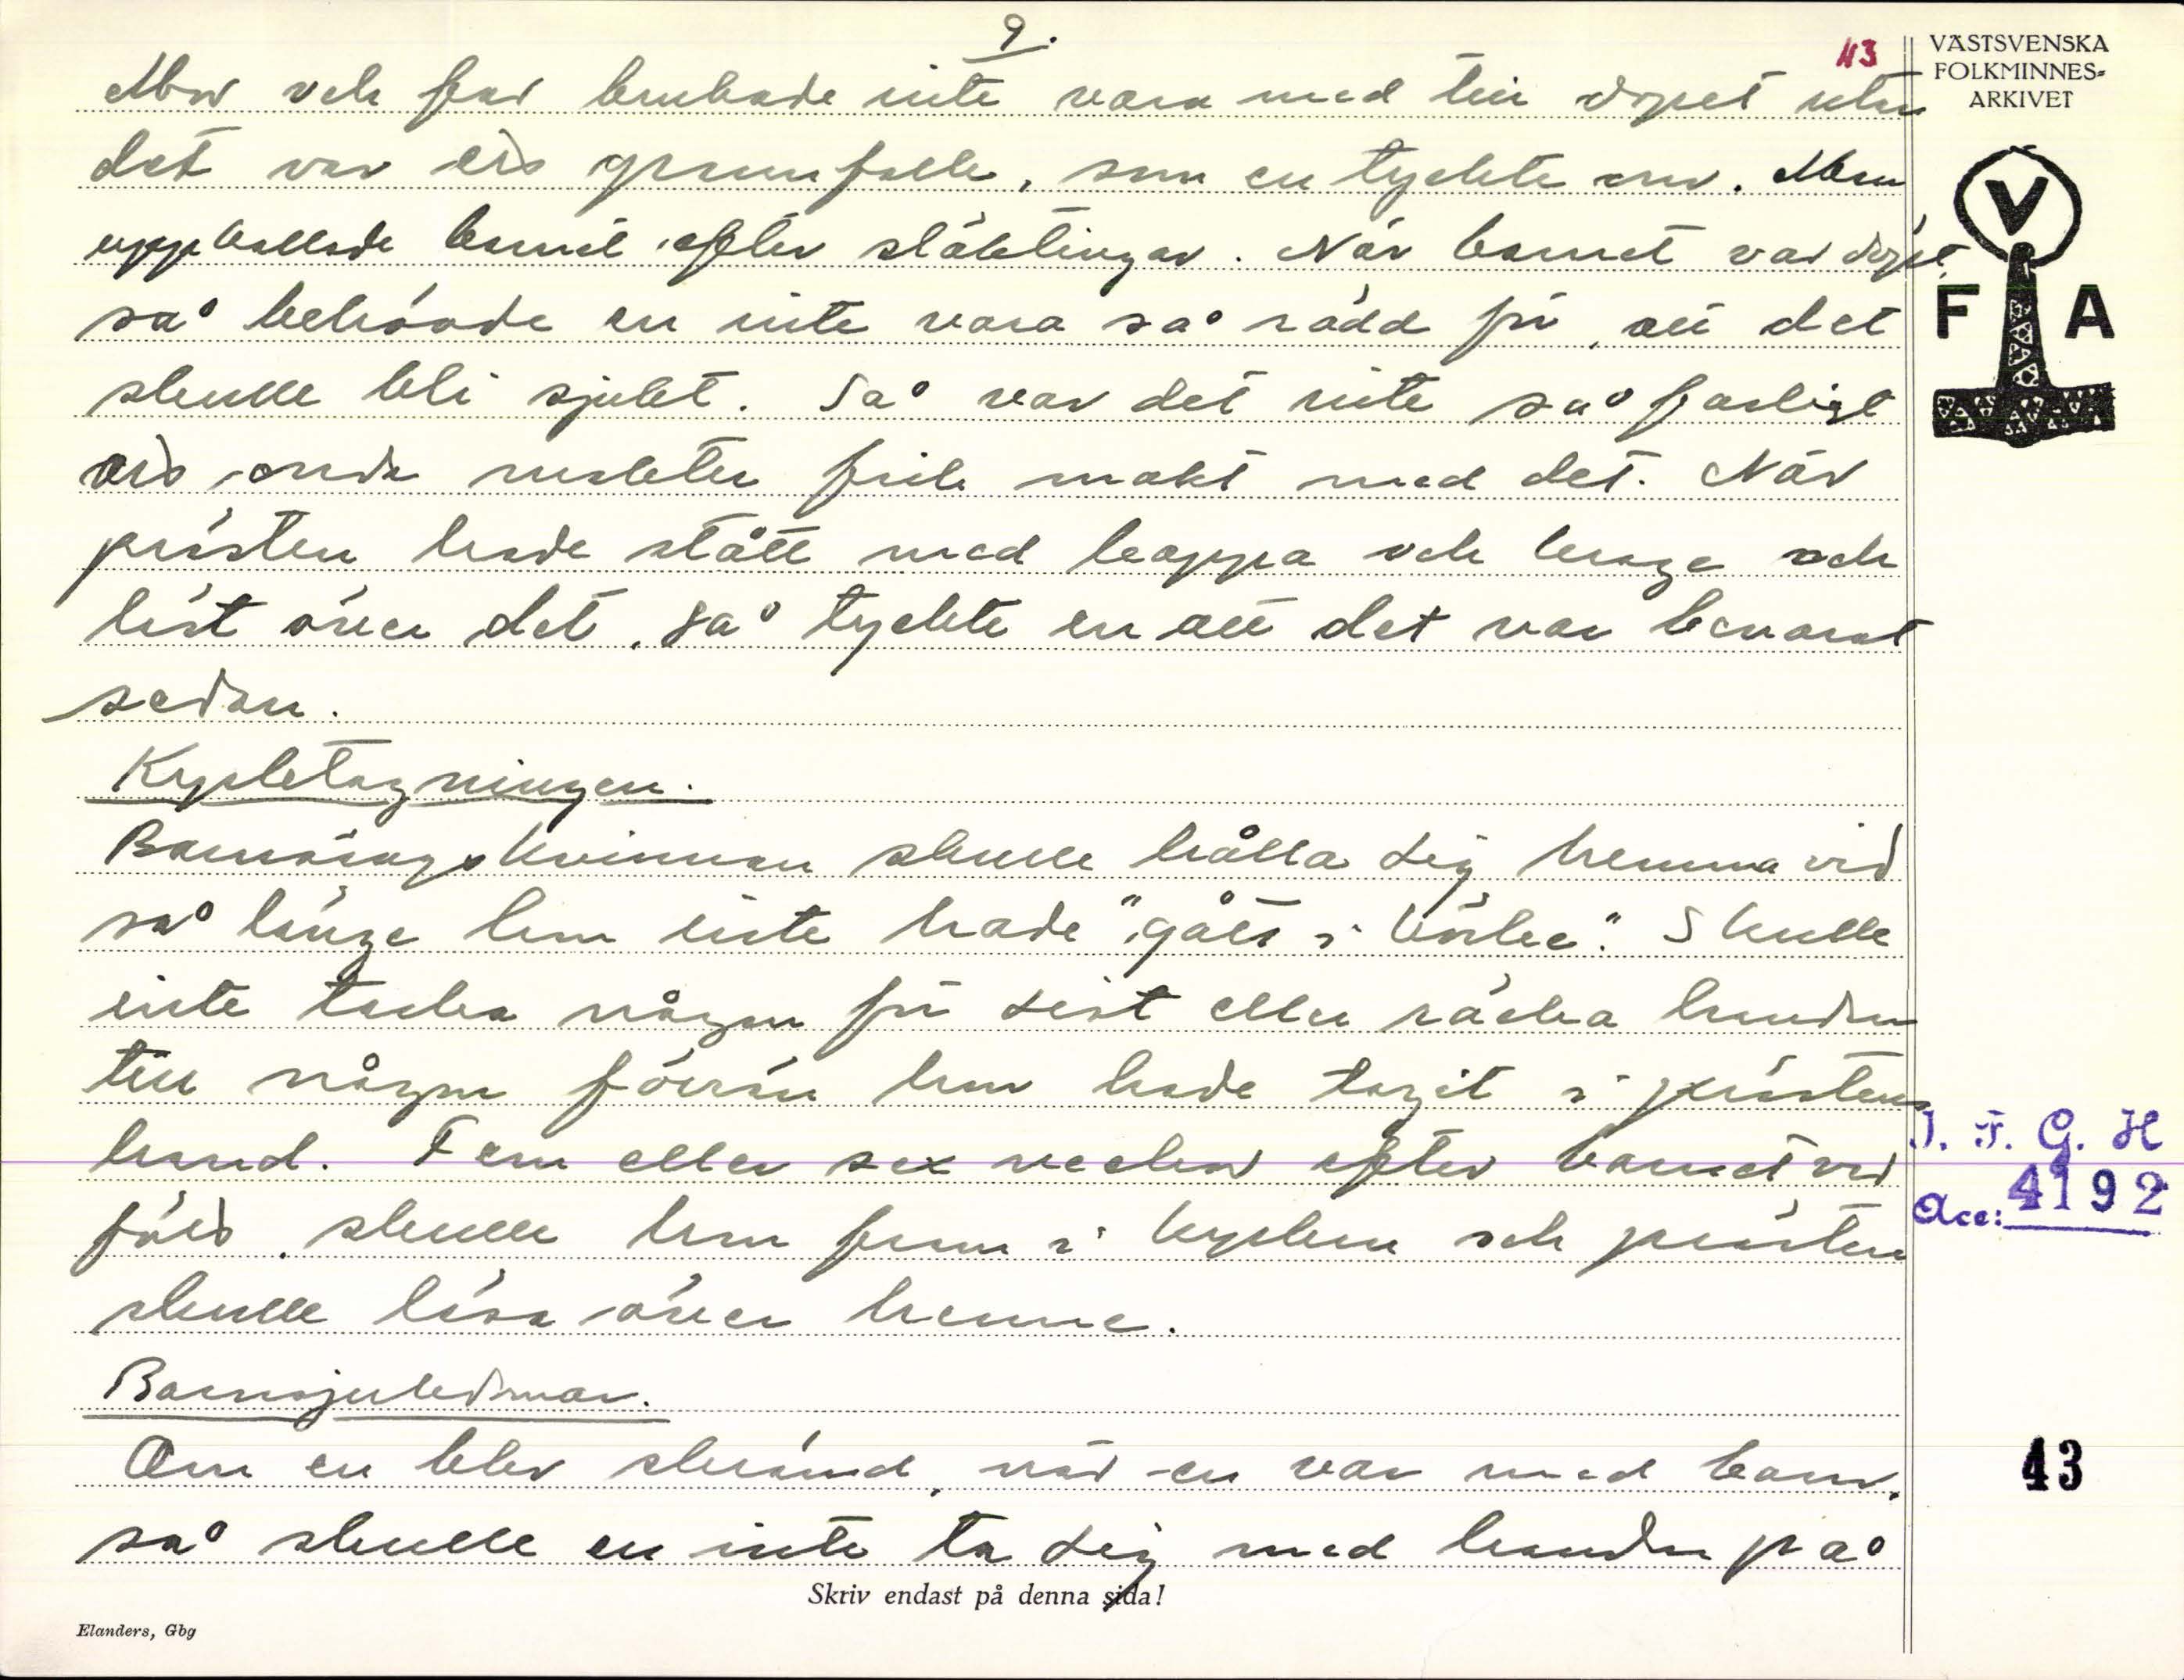 9.
43
VÄSTSVENSKA
FOLKMINNES-
ARKIVET
Mor och far brukade inte vara med till dopet utan
det var ens grannfolk, som en tyckte om. Men
uppkallade barnet efter släktingar. När barnet var döpt,
så behövde en inte vara så rädd för, att det
skulle bli sjukt. Så var det inte så farligt
att onda makter fick makt med det. När
prästen hade stått med kappa och krage och
läst över det, så tyckte en att det var bevarat
sedan.
V
F A
Kyrktagningen.
Barnsängskvinnan skulle hålla sig hemma vid
så länge hon inte hade "gått i körka". Skulle
inte tacka någon för sist eller räcka handen
till någon förrän hon hade tagit i prästens
hand. Fem eller sex veckor efter barnet var
fött, skulle hon fram i kyrkan och prästen
skulle läsa över henne.
I. F. G. H
Acc: 4192
Barnsjukdomar.
Om en blev skrämd, när en var med barn,
så skulle en inte ta sig med handen på
43
Skriv endast på denna sida!
Elanders, Gbg